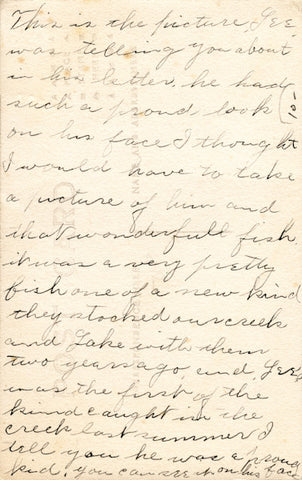 This is the picture, Lee
was telling you about
in his letter. he had
such a proud look
on his face I thought
I would have to take
a picture of him and
that wonderfull fish
it was a very pretty
fish one of a new kind
they stocked our creek
and Lake with them
two years ago and Lee
was the first of the
kind caught in the
creek last summer I
tell you he was a proud
kid. you can see it on his face